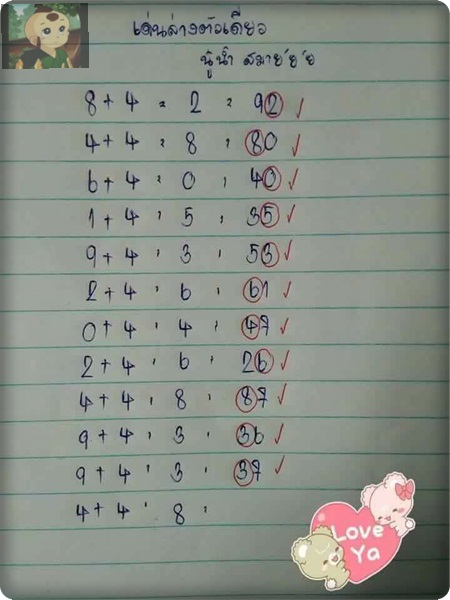 เด่นล่างตัวเดียว
นู๋น้ำ สมาย์ย์ย
8+4 = 2 = 92 ✓
4+4 = 8 = 80 ✓
6+4 = 0 = 40 ✓
1+4 = 5 = 35 ✓
9+4 = 3 = 53 ✓
2+4 = 6 = 61 ✓
0+4 = 4 = 47 ✓
2+4 = 6 = 26 ✓
4+4 = 8 = 87 ✓
9+4 = 3 = 36 ✓
9+4 = 3 = 37 ✓
4+4 = 8 =
Love
Ya